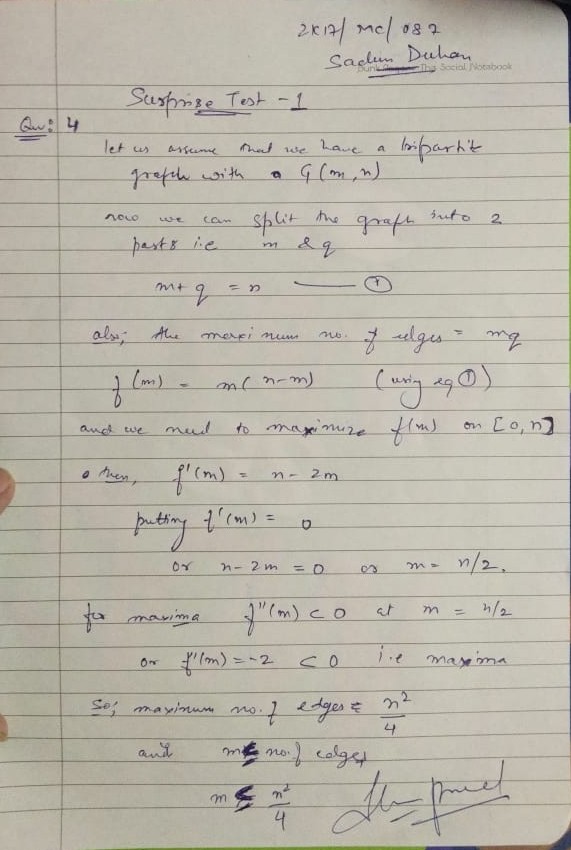 2K17/MC/087
Sachin Duhan
The Social Notebook
Surprise Test - 1
Qu: 4
let us assume that we have a bipartit
graph with a G(m,n)
now we can split the graph into 2
parts i.e m & q
m+q = n ——— ①
also; the maximum no. of edges = mq
f(m) = m(n-m) (using eq ①)
and we need to maximize f(m) on [0,n]
then, f'(m) = n - 2m
putting f'(m) = 0
or n - 2m = 0 or m = n/2.
for maxima f''(m) < 0 at m = n/2
or f''(m) = -2 < 0 i.e maxima
So; maximum no. of edges = n²/4
and m ≤ no. of edges
m ≤ n²/4